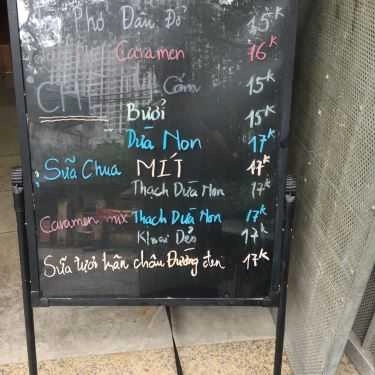 Phở Đậu Đỏ 15K
Caramen 16K
Cám 15K
CHÈ Bưởi 15K
Dừa Non 17K
Sữa Chua MÍT 17K
Thạch Dừa Non 17K
Caramen mix Thạch Dừa Non 17K
Khoai Dẻo 17K
Sữa tươi trân châu Đường đen 17K